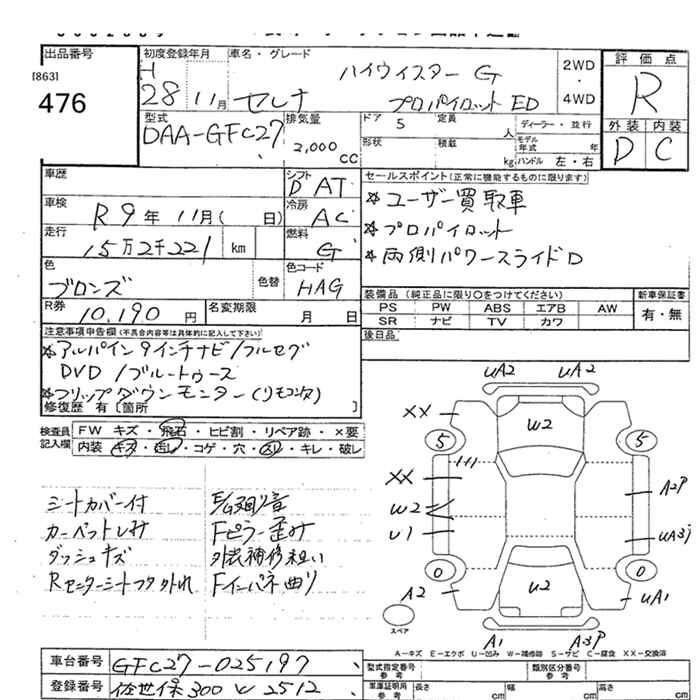 出品番号
[863]
476
初度登録年月
H
28年 11月
車名・グレード
セレナ
ハイウィスター G
プロパイロット ED
2WD
・
4WD
評価点
R
外装 内装
D C
型式
DAA-GFC27
排気量
2,000
CC
ドア 5
定員
人
ディーラー・並行
形状
積載
kg
モデル
年式 年
ハンドル 左・右
車歴
シフト
D AT
車検
R 9 年 11月( 日)
冷房
AC
走行
15万2千221 km
燃料
G
色
ブロンズ
色替
色コード
HAG
R券
10,190 円
名変期限
月 日
セールスポイント(正常に機能するものに限ります)
* ユーザー買取車
* プロパイロット
* 両側パワースライドD
装備品 (純正品に限り○をつけてください)
PS PW ABS エアB AW
SR ナビ TV カワ
新車保証書
有・無
後日品
注意事項申告欄(不具合内容等は具体的に記入して下さい)
*アルパイン9インチナビ/フルセグ
DVD/ブルートゥース
*フリップダウンモニター(リモコン欠)
修復歴 有〔箇所 〕
検査員
記入欄
FW キズ・飛石・ヒビ割・リペア跡・×要
内装 キズ・汚レ・コゲ・穴・スレ・キレ・破レ
シートカバー付
カーペットしみ
ダッシュキズ
Rセンターシートフタ外れ
Fピラー歪み
外装補修粗い
Fインパネ曲り
UA2 UA2
XX
U2
5 5
XX
W2
U1
A2P
UA3j
0 0
A2
U2
UA1
A1 A3P
スペア
A-キズ E-エクボ U-凹み W-補修跡 S-サビ C-腐食 XX-交換済
車台番号
GFC27-025197
登録番号
佐世保 300 W 2512
型式指定番号
参考
類別区分番号
参考
車庫証明用
参考
長さ
幅
高さ